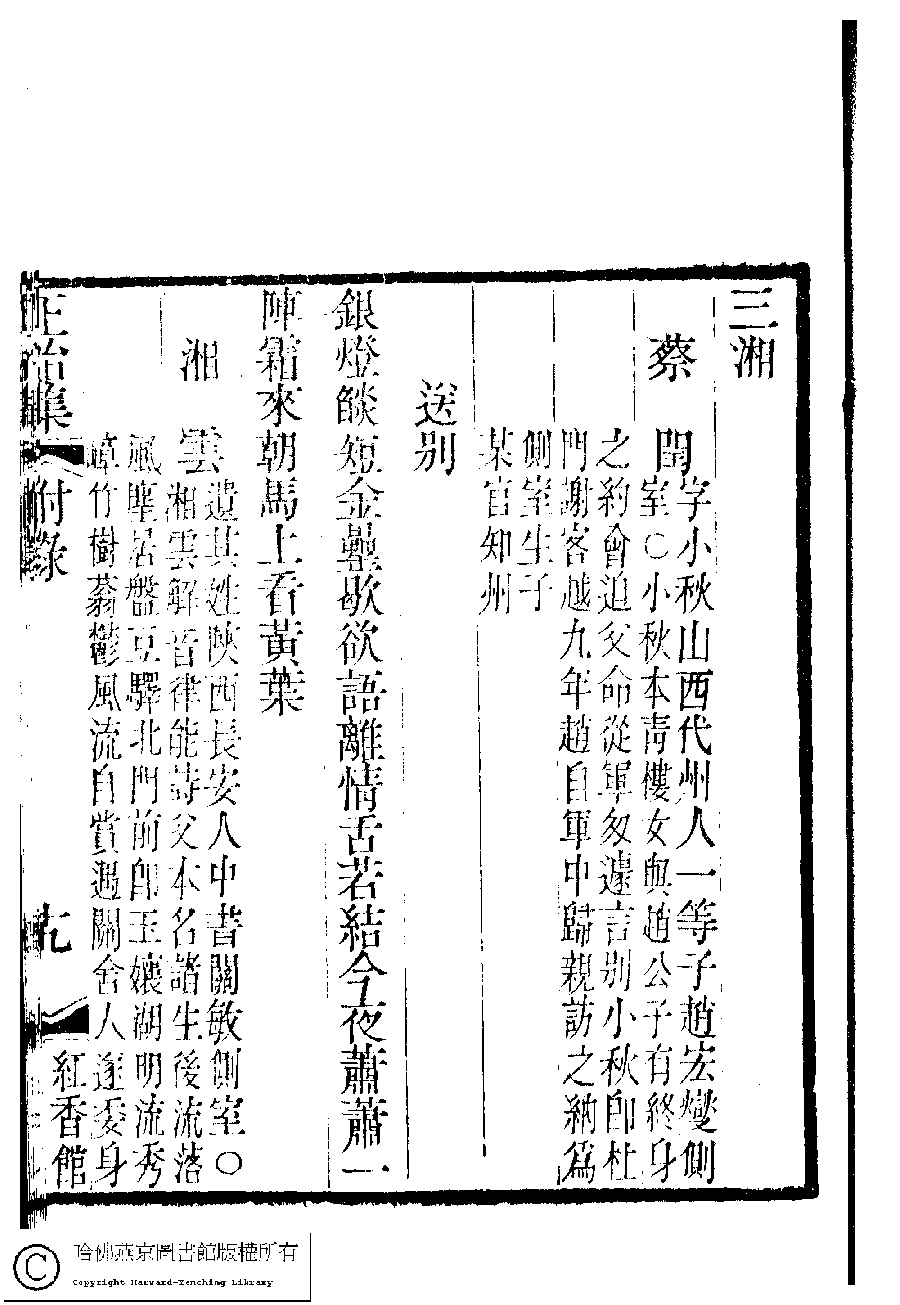 三湘
蔡閏
字小秋山西代州人一等子趙宏燮側
室○小秋本靑樓女與趙公子有終身
之約會迫父命從軍匆遽言别小秋卽杜
門謝客越九年趙自軍中歸親訪之納爲
側室生子
某官知州
送别
銀燈燄短金罍歇欲語離情舌若結今夜蕭蕭一
陣霜來朝馬上看黃葉
湘雲
遺其姓陝西長安人中書關敏側室○
湘雲解音律能詩父本名諸生後流落
風塵居盤豆驛北門前卽玉孃湖明流秀
嶂竹樹蓊鬱風流自賞遇關舍人遂委身
正始集 附錄 九 紅香館
哈佛燕京圖書館版權所有
Copyright Harvard-Yenching Library